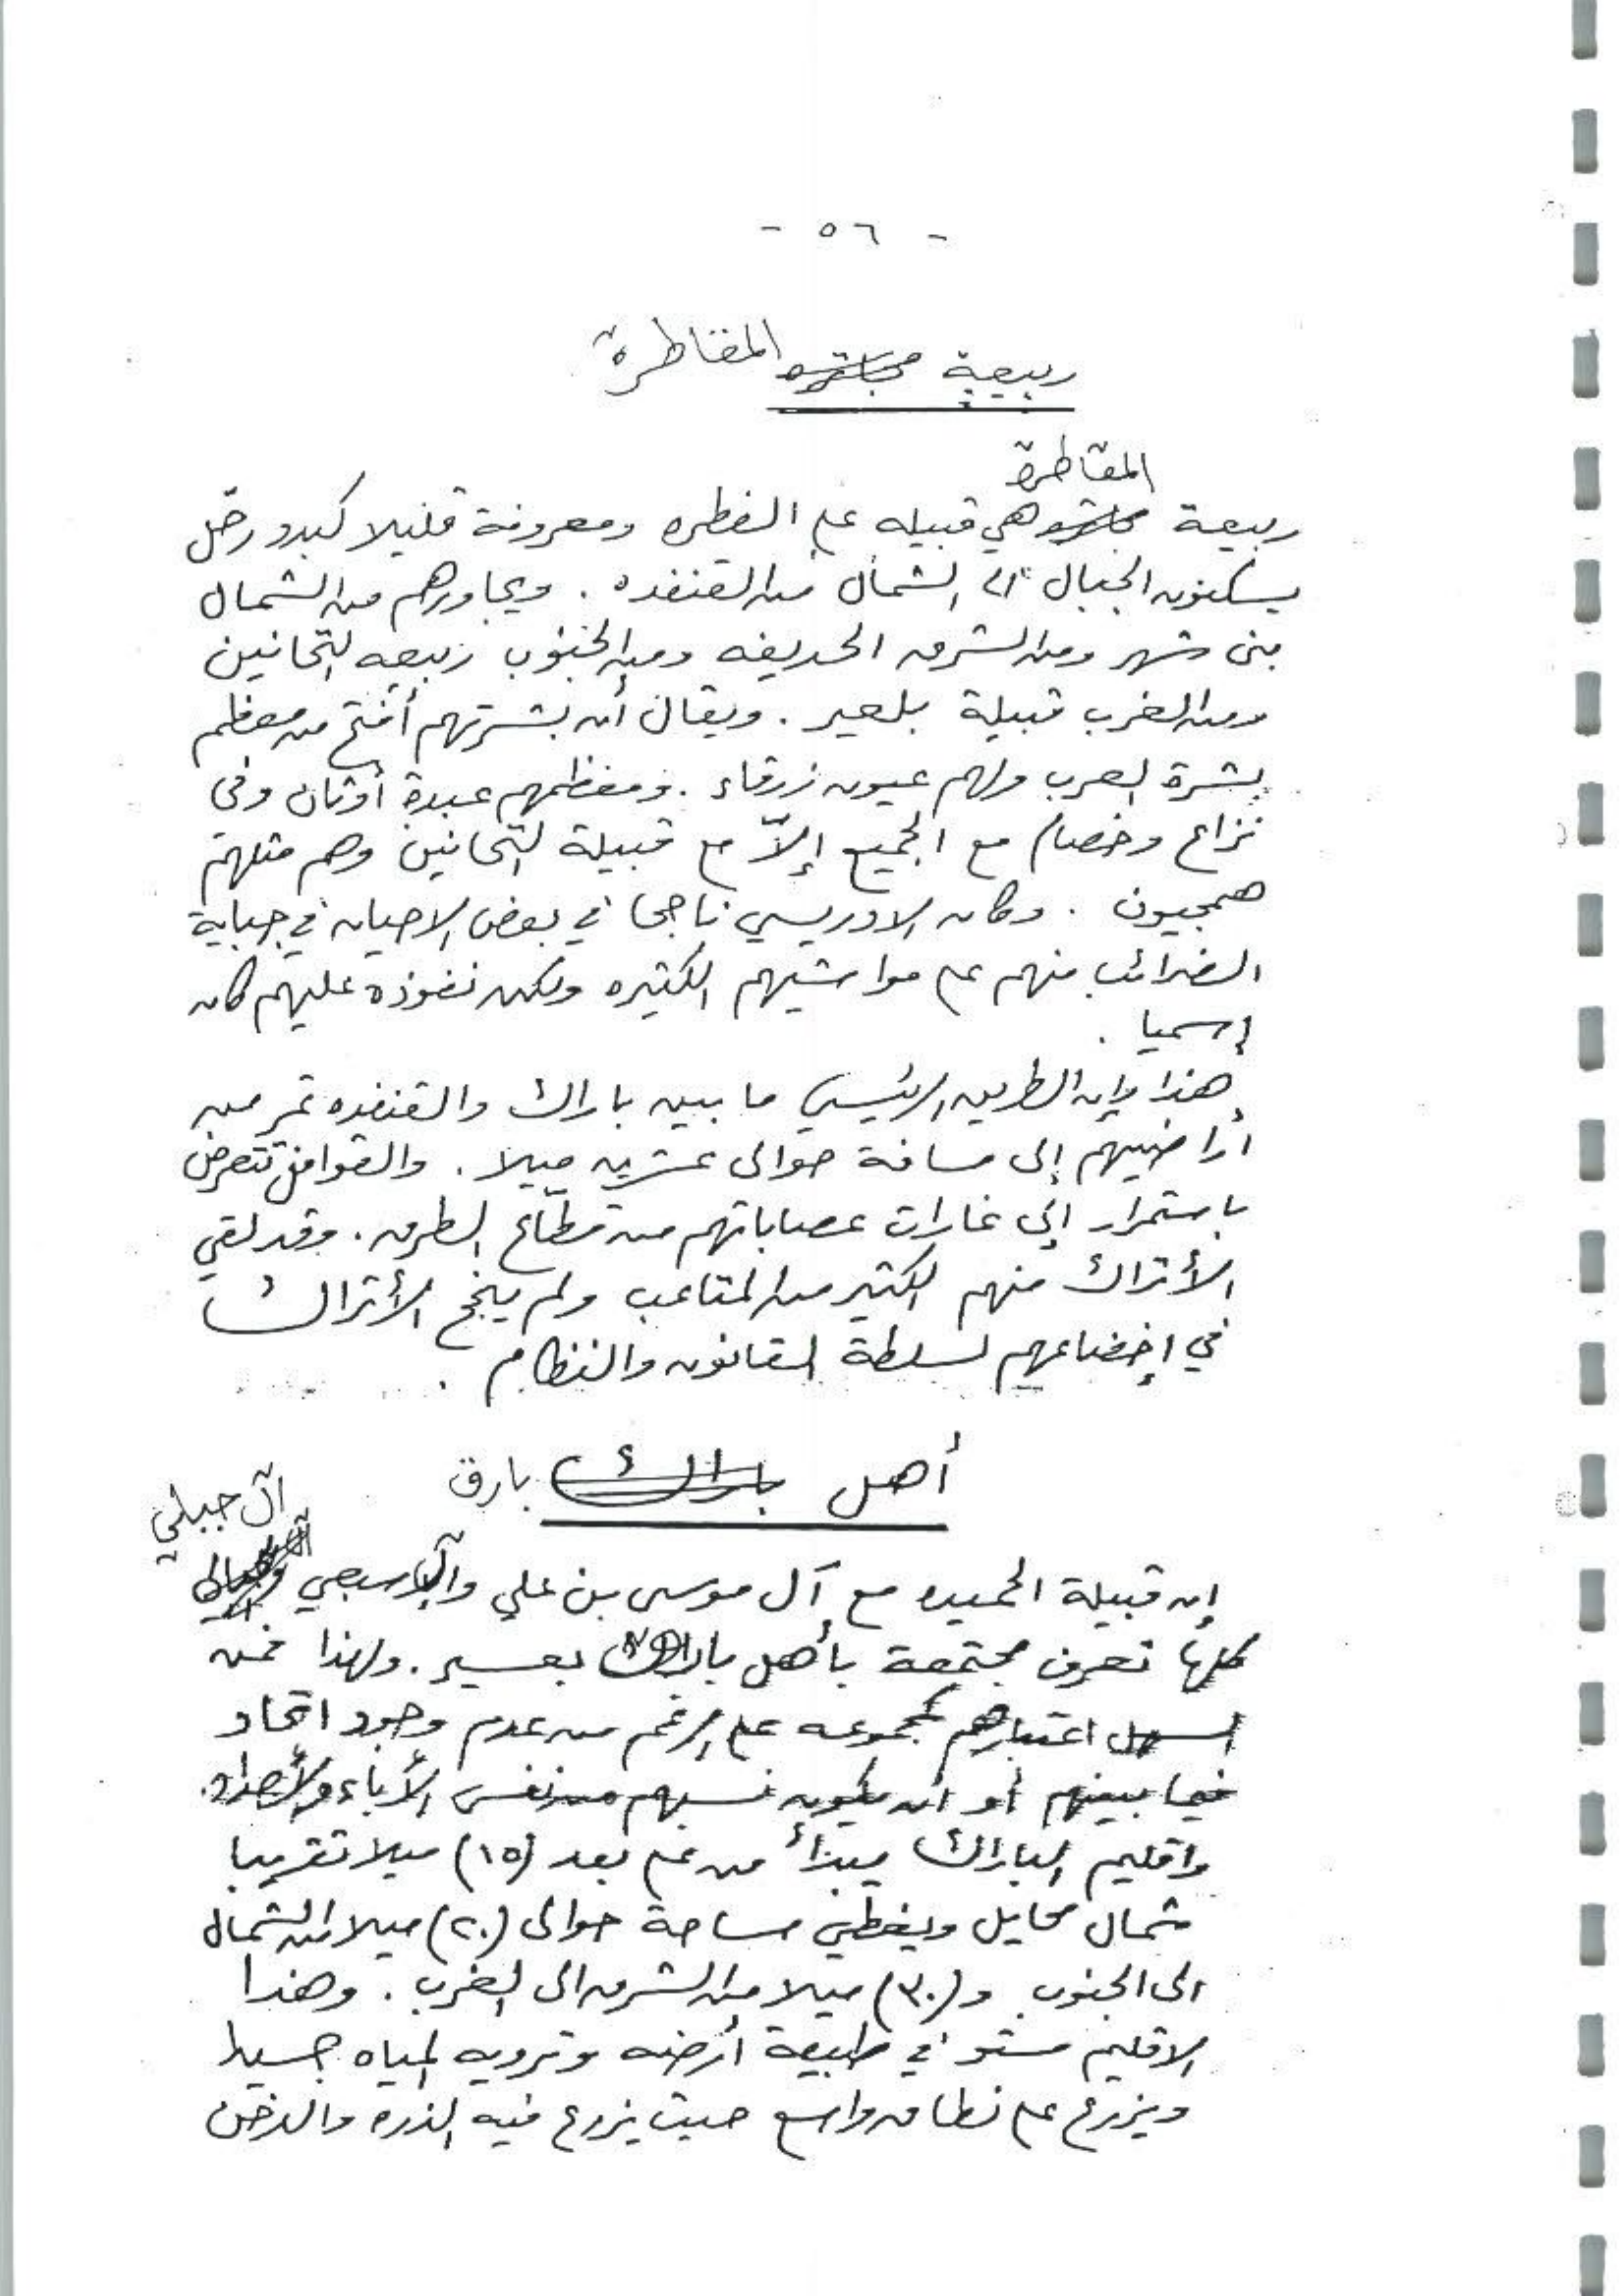 - ٥٦ -
ربيعة المقاطرة
المقاطرة
ربيعة هي قبيله على الفطره ومعروفة قليلا كبدو رحّل
يسكنون الجبال الى الشمال من القنفده . ويجاورهم من الشمال
بنى شهر ومن الشرق الحريفه ومن الجنوب ربيعه التحانين
ومن الغرب قبيلة بلعير . ويقال أن بشرتهم أفتح من معظم
بشرة العرب ولهم عيون زرقاء . ومعظمهم عبدة أوثان وفى
نزاع وخصام مع الجميع إلاّ مع قبيلة التحانين وهم مثلهم
همجيون . وكان الادريسي ناجحا في بعض الاحيان في جباية
الضرائب منهم على مواشيهم الكثيره ولكن نفوذه عليهم كان
إسميا .
هذا وإن الطريق الرئيسي ما بين باراك والقنفده تمر من
أراضيهم إلى مسافة حوالى عشرين ميلا . والقوافل تتعرض
باستمرار إلى غارات عصاباتهم من قطّاع الطرق . وقد لقي
الأتراك منهم الكثير من المتاعب ولم ينجح الأتراك
في إخضاعهم لسلطة القانون والنظام .
أهل باراك بارق
آل جبلي
إن قبيلة الحميده مع آل موسى بن علي وآل اسبعي
كلها تعرف مجتمعة بأهل باراك بعسير . ولهذا فمن
السهل اعتبارهم كمجموعه على الرغم من عدم وجود اتحاد
فيما بينهم أو أن يكون نسبهم من نفس الأباء والأجداد .
واقليم الباراك يبدأ من على بعد (١٥) ميلا تقريبا
شمال محايل ويغطي مساحة حوالى (٢٠) ميلا من الشمال
الى الجنوب و (٣٠) ميلا من الشرق الى الغرب . وهذا
الاقليم مستو في طبيعة أرضه وترويه المياه جيدا
ويزرع على نطاق واسع حيث يزرع فيه الذره والدخن